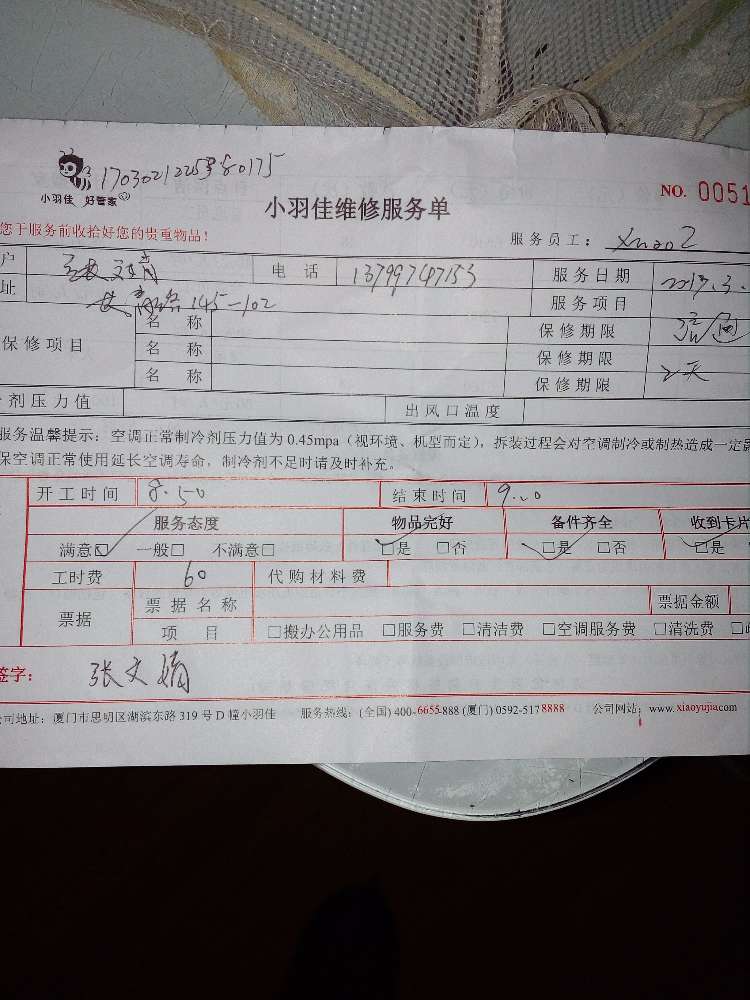 小羽佳 好管家
小羽佳维修服务单
NO. 0051
您于服务前收拾好您的贵重物品！
服务员工：
户 电 话 13799747153 服务日期 2017.3.
址 145-102 服务项目
保修项目 名 称 保修期限
名 称 保修期限
名 称 保修期限 2天
剂压力值 出风口温度
服务温馨提示：空调正常制冷剂压力值为 0.45mpa（视环境、机型而定），拆装过程会对空调制冷或制热造成一定
保空调正常使用延长空调寿命，制冷剂不足时请及时补充。
开工时间 8.50 结束时间 9.00
服务态度 物品完好 备件齐全 收到卡片
满意☑ 一般□ 不满意□ ☑是 □否 ☑是 □否 ☑是
工时费 60 代购材料费
票据 票据名称 票据金额
项 目 □搬办公用品 □服务费 □清洁费 □空调服务费 □清洗费
签字： 张文娟
公司地址：厦门市思明区湖滨东路 319 号 D 幢小羽佳 服务热线：(全国) 400-6655-888 (厦门) 0592-5178888 公司网站：www.xiaoyujia.com